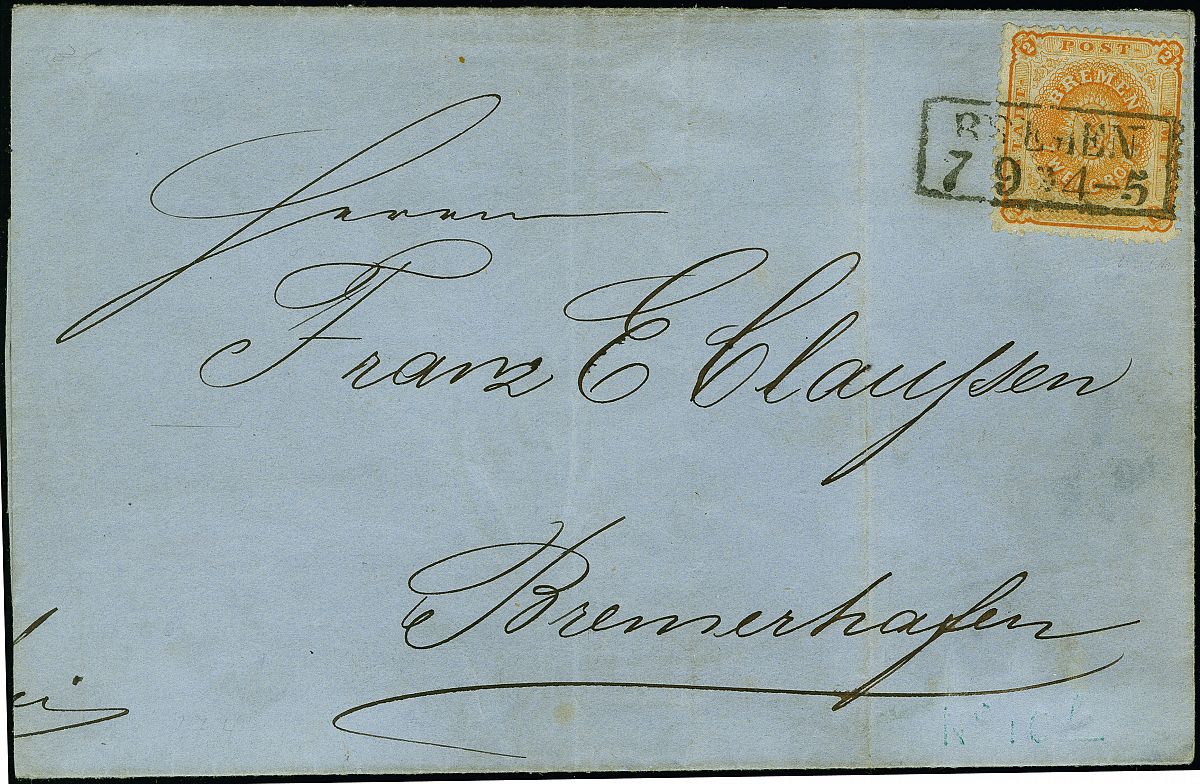 2 POST 2
BREMEN
ZWEI GROTE
BREMEN
7 9 * 4-5
Herrn
Franz E Claussen
Bremerhafen
No 10